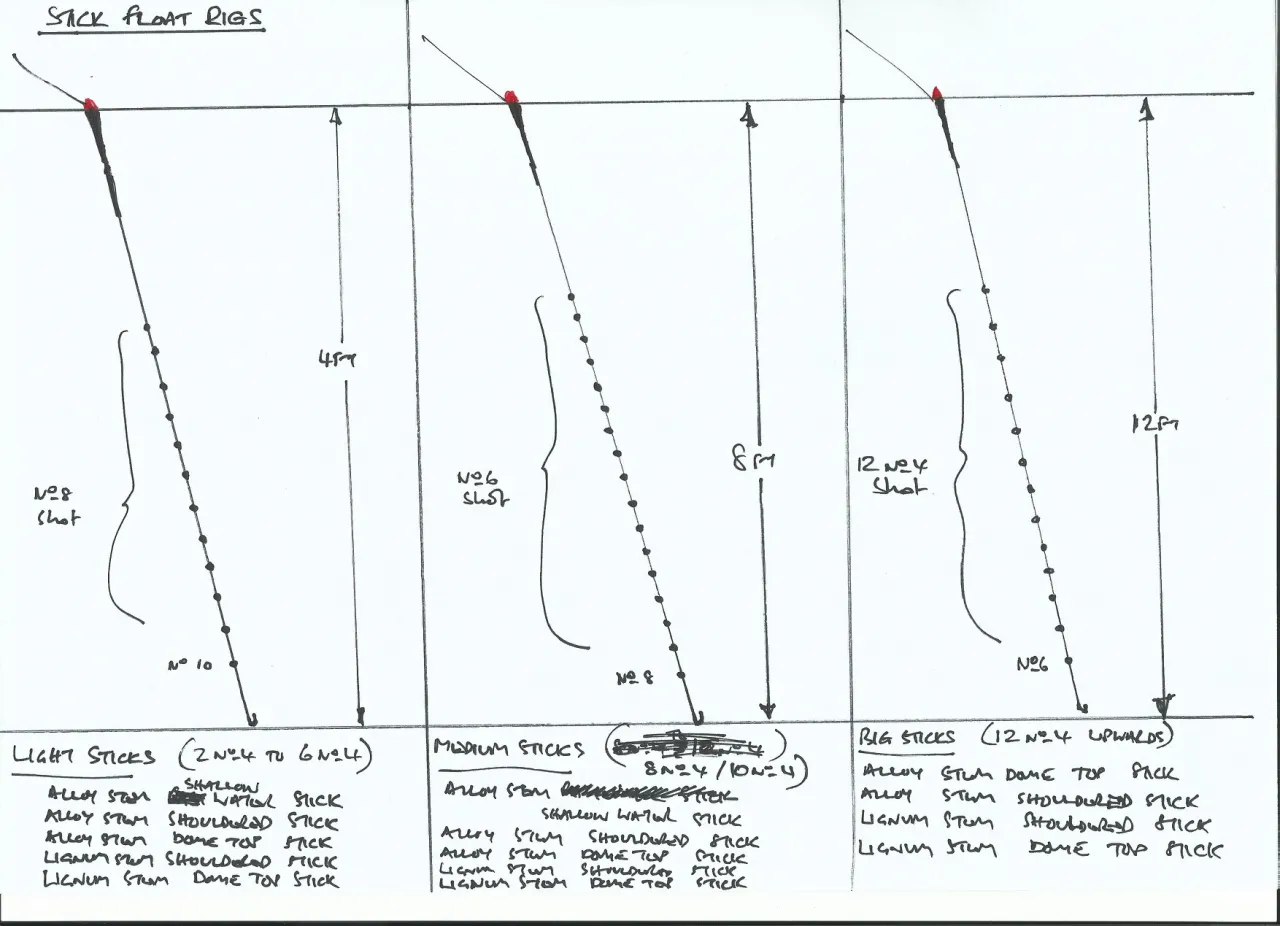 STICK FLOAT RIGS
4FT
No8
Shot
No 10
LIGHT STICKS (2 No4 TO 6 No4)
SHALLOW
ALLOY STEM WATER STICK
ALLOY STEM SHOULDERED STICK
ALLOY STEM DOME TOP STICK
LIGNUM STEM SHOULDERED STICK
LIGNUM STEM DOME TOP STICK
8 FT
No6
Shot
No 8
MEDIUM STICKS
8 No4 / 10 No4)
ALLOY STEM STICK
SHALLOW WATER STICK
ALLOY STEM SHOULDERED STICK
ALLOY STEM DOME TOP STICK
LIGNUM STEM SHOULDERED STICK
LIGNUM STEM DOME TOP STICK
12FT
12 No4
Shot
No6
BIG STICKS (12 No4 UPWARDS)
ALLOY STEM DOME TOP STICK
ALLOY STEM SHOULDERED STICK
LIGNUM STEM SHOULDERED STICK
LIGNUM STEM DOME TOP STICK